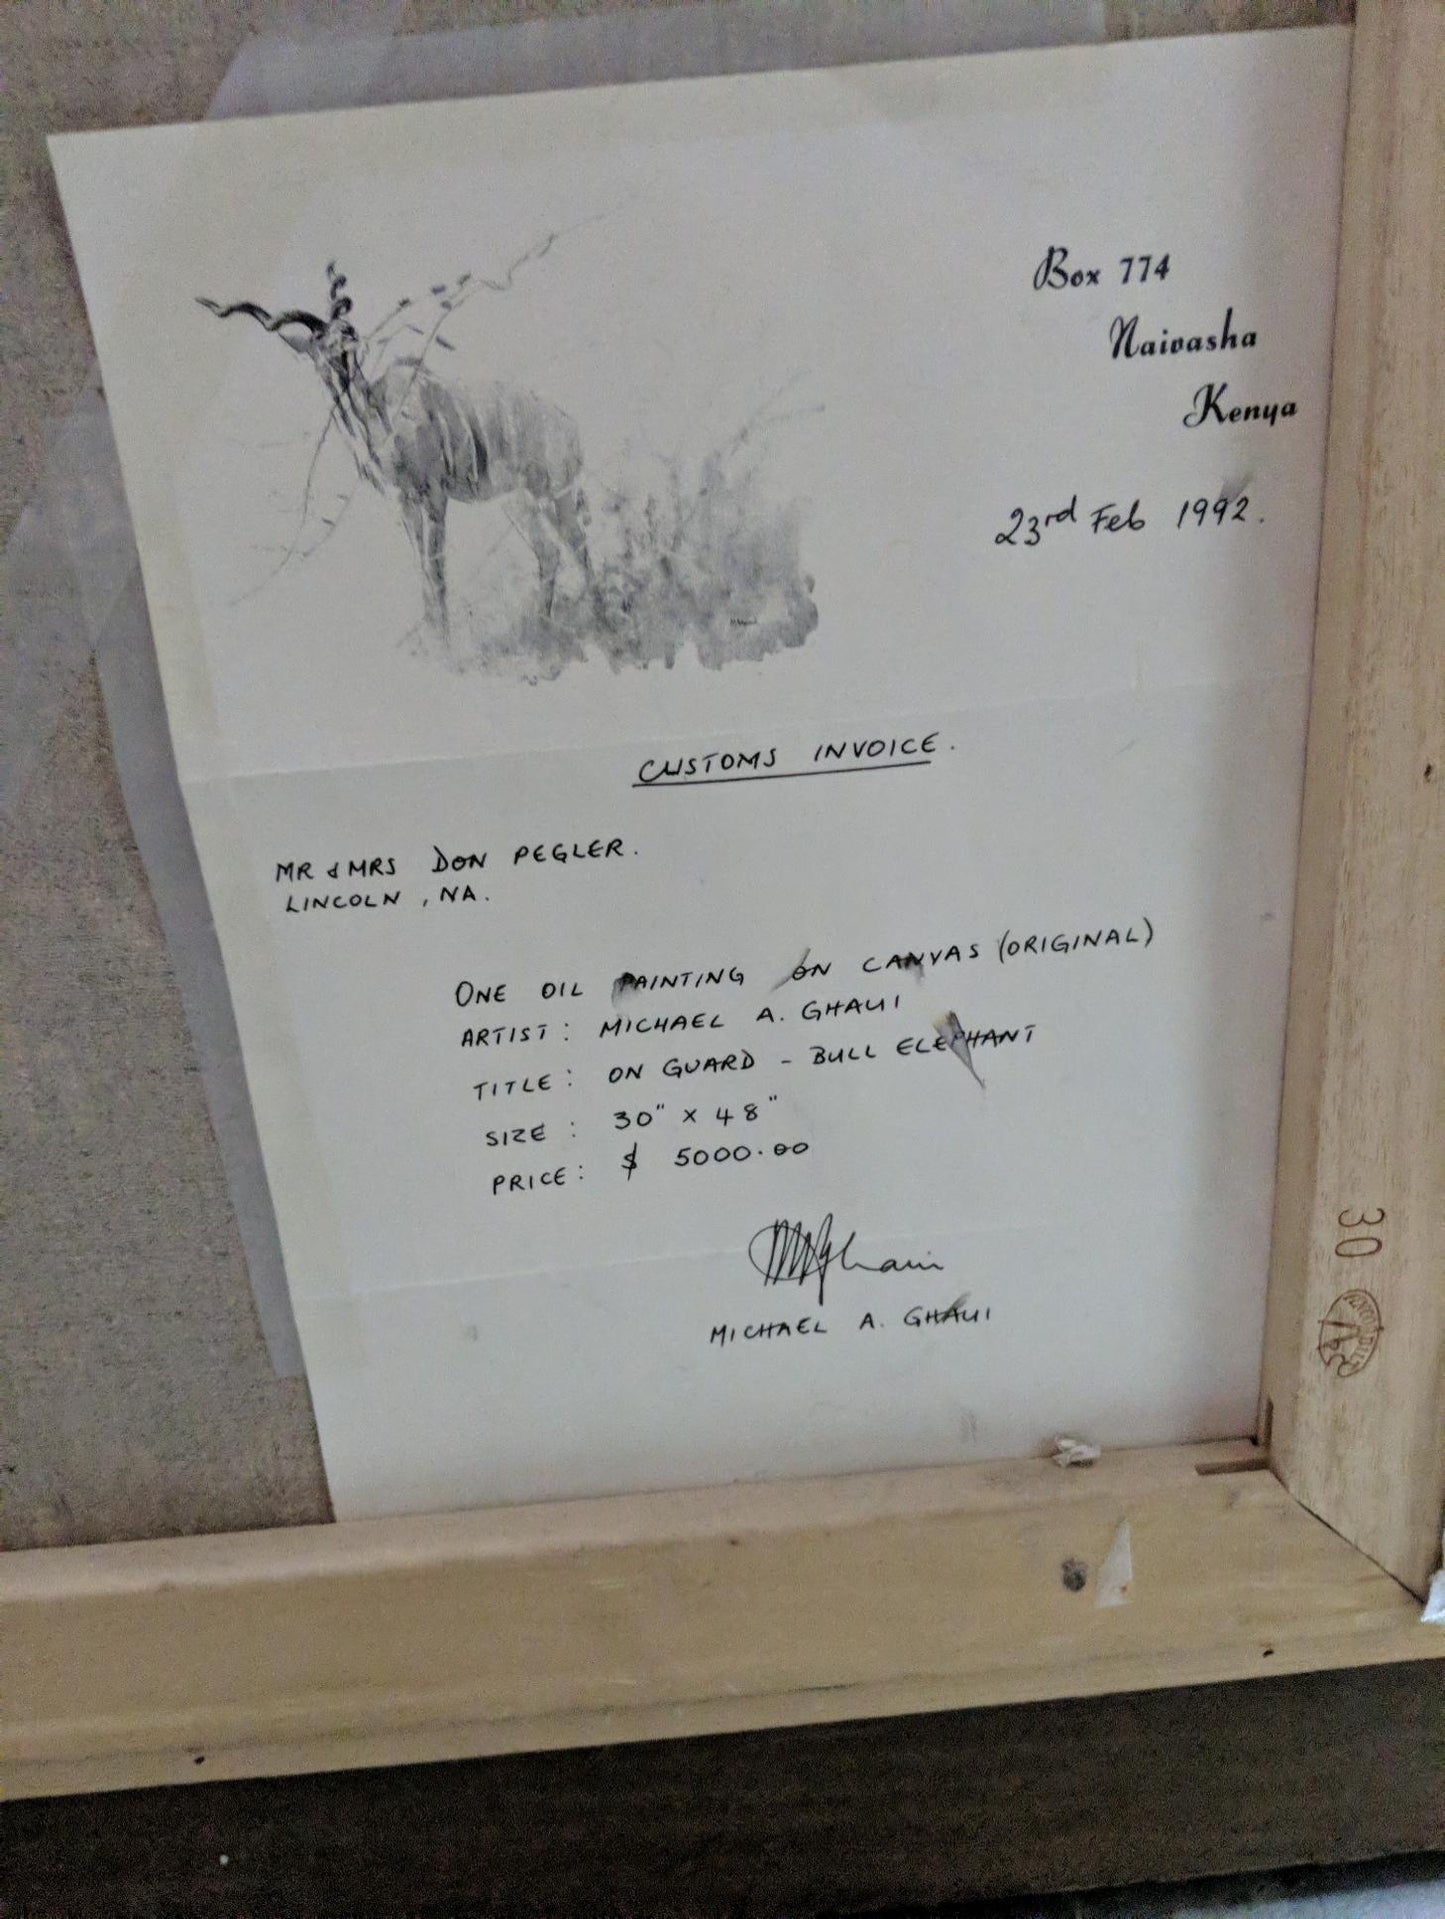 Box 774
Naivasha
Kenya
23rd Feb 1992.
CUSTOMS INVOICE.
MR & MRS DON PEGLER.
LINCOLN, NA.
ONE OIL PAINTING ON CANVAS (ORIGINAL)
ARTIST: MICHAEL A. GHAUI
TITLE: ON GUARD - BULL ELEPHANT
SIZE: 30" x 48"
PRICE: $ 5000.00
MICHAEL A. GHAUI
30